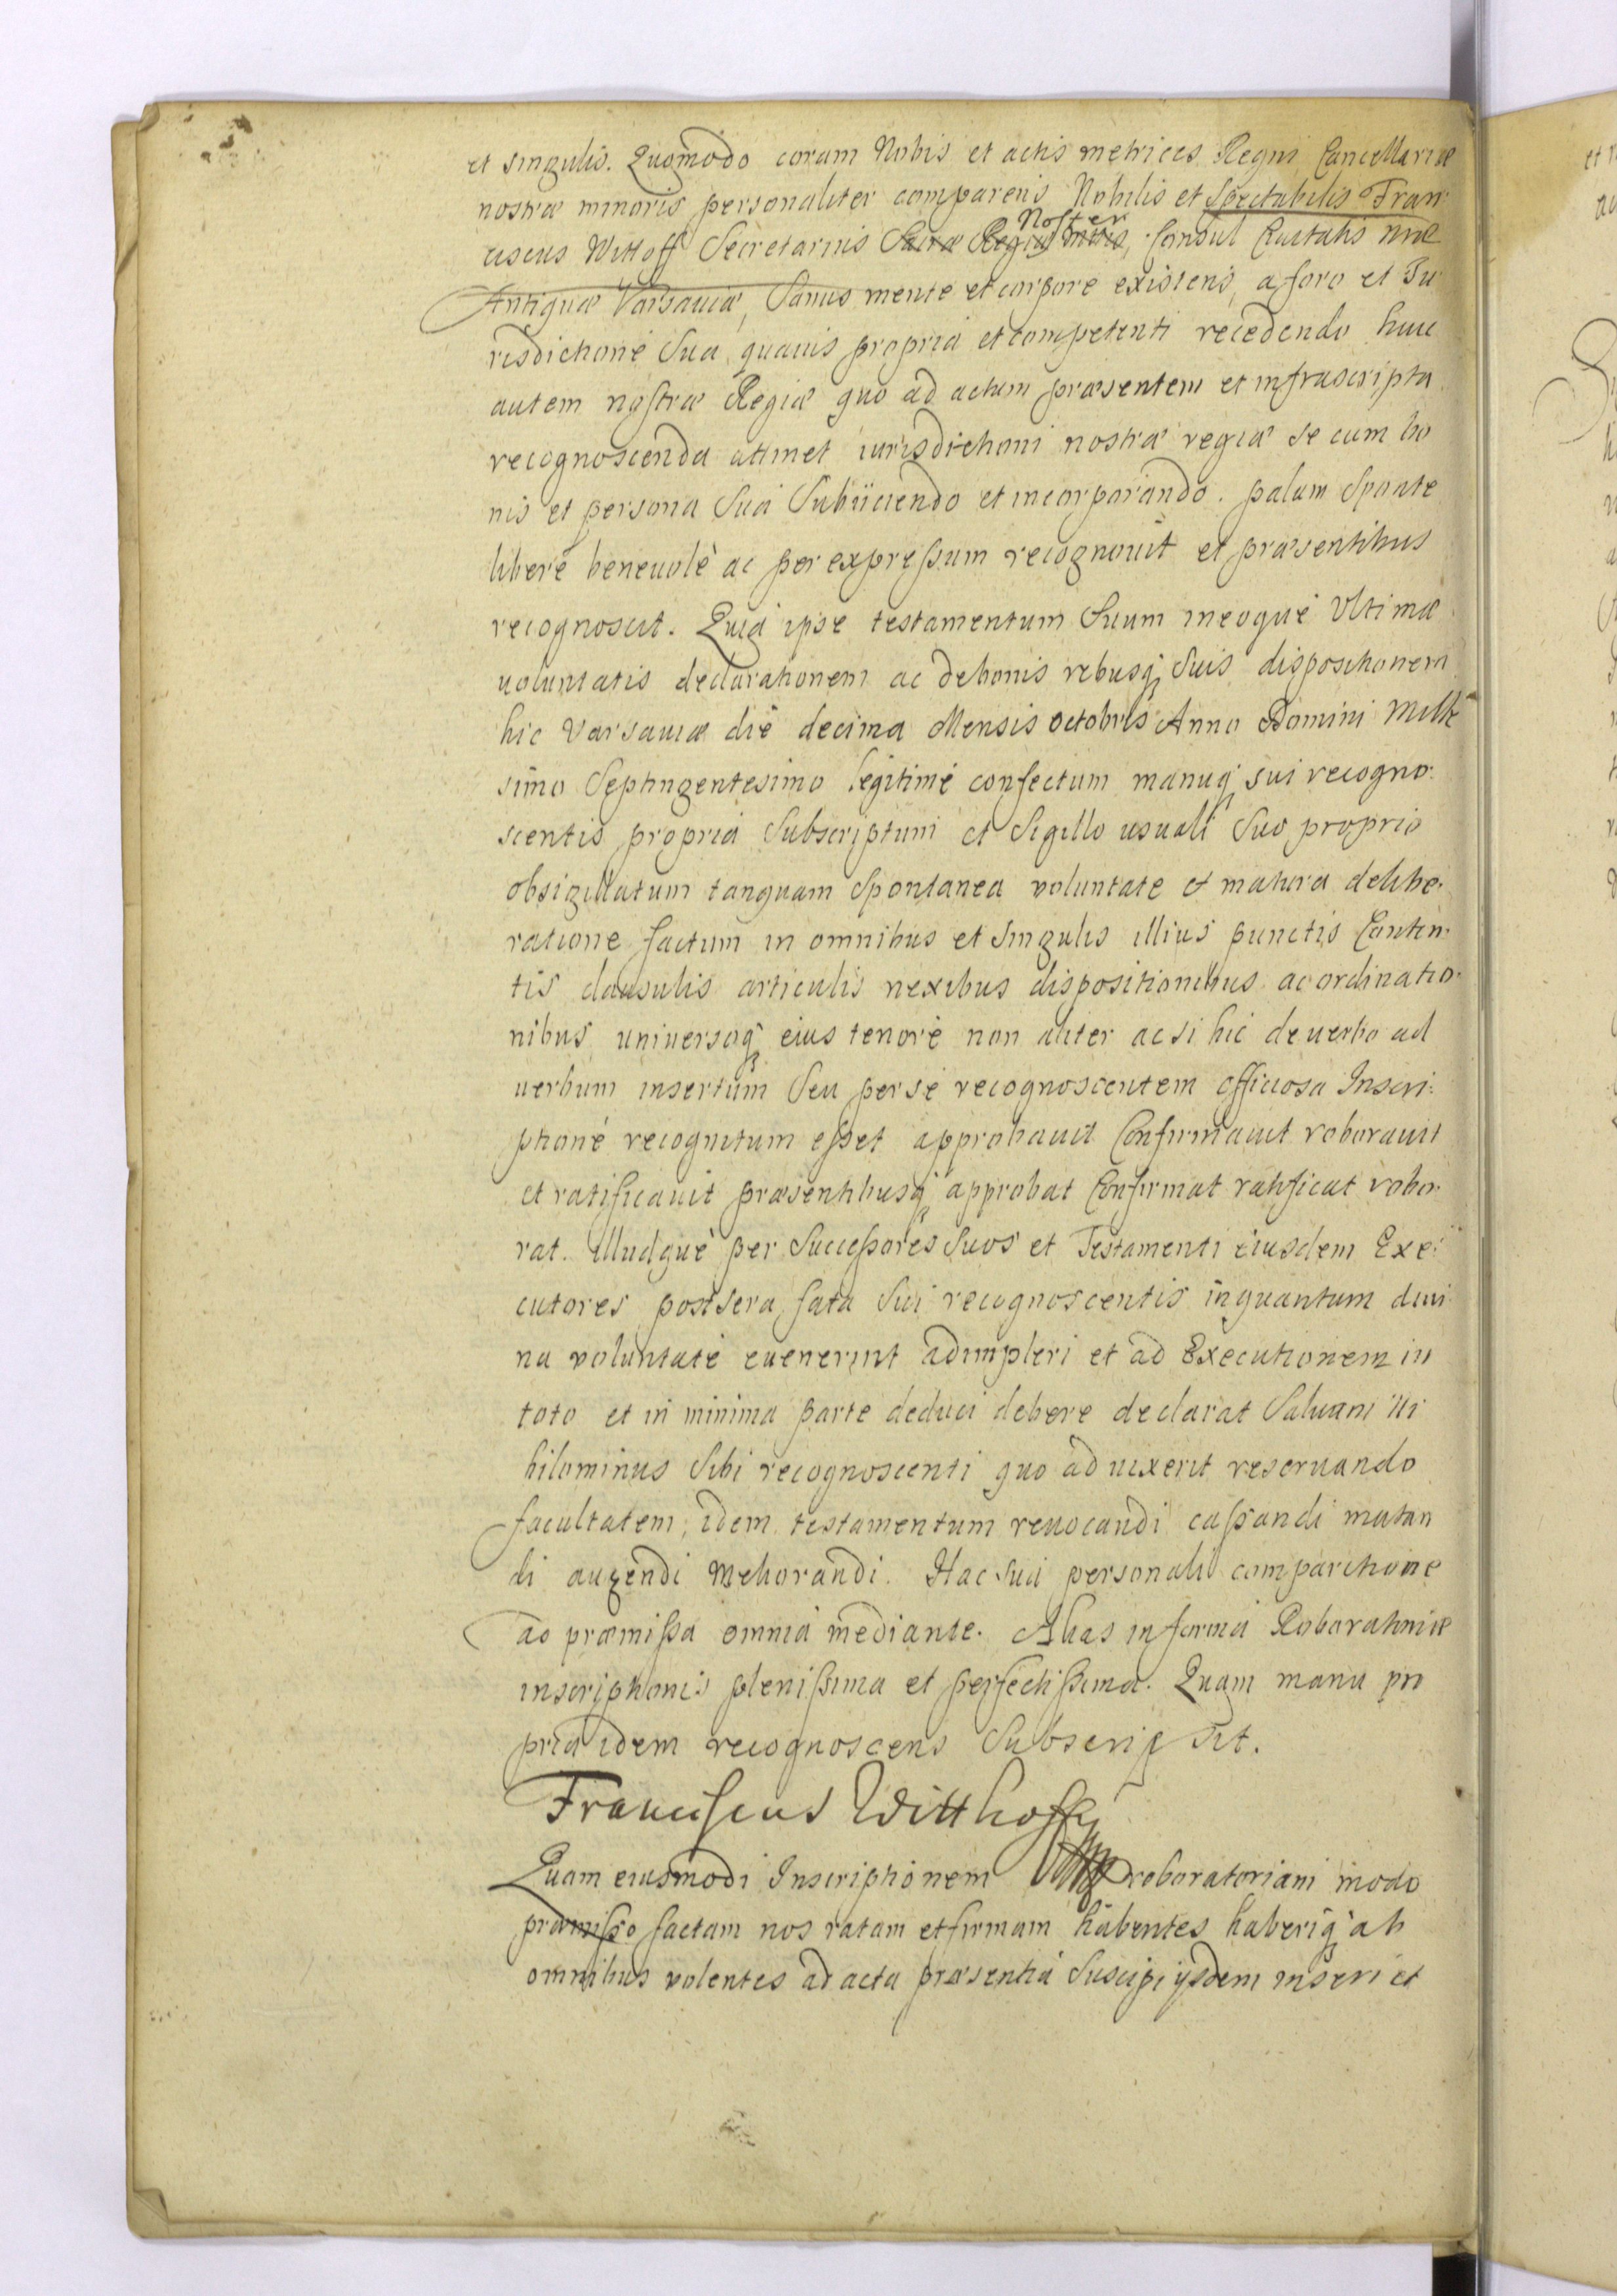 et singulis. Quomodo coram Nobis et actis metrices Regni Cancellariæ
nostræ minoris personaliter comparens Nobilis et Spectabilis Fran:
ciscus Wittoff Secretarius Sacræ Regiæ Mttis Noster, Consul Ciuitatis nræ
Antiquæ Varsauiæ, Sanus mente et corpore existens, a foro et Iu
risdictione Sua quauis propria et competenti recedendo huic
autem nostræ Regiæ quo ad actum præsentem et infrascripta
recognoscenda attinet iurisdictioni nostræ regiæ se cum bo
nis et persona Sua Subiiciendo et incorporando. palam Sponte
liberè beneuolè ac per expressum recognouit et præsentibus
recognoscit. Quia ipse testamentum Suum ineoque Vltimæ
uoluntatis declarationem ac de bonis rebusq Suis dispositionem
hic Varsauiæ die decima Mensis octobris Anno Domini Mille
simo Septingentesimo legitimè confectum manuq sui recogno:
scentis propria Subscriptum et Sigillo usuali Suo proprio
obsigillatum tanquam Spontanea voluntate et matura delibe:
ratione factum in omnibus et singulis illius punctis Conten:
tis clausulis articulis nexibus dispositionibus ac ordinatio:
nibus universoq eius tenore non aliter ac si hic de uerbo ad
uerbum insertum Seu per se recognoscentem officiosa Inscri:
ptione recognitum esset approbauit Confirmauit roborauit
et ratificauit præsentibusq approbat Confirmat ratificat robo:
rat. Illudque per Successores Suos et Testamenti eiusdem Exe:
cutores post sera fata Sui recognoscentis inquantum diui:
na voluntate euenerint adimpleri et ad Executionem in
toto et in minima parte deduci debere declarat Saluam ni
hilominus Sibi recognoscenti quo ad uixerit reseruando
facultatem, idem testamentum reuocandi cassandi mutan
di augendi Meliorandi. Hac Sua personali comparitione
ad præmissa omnia mediante. Alias in forma Roborationis
inscriptionis plenissima et perfectissima. Quam manu pro
pria idem recognoscens Subscripsit.
Franciscus Witthoff
Quam eiusmodi Inscriptionem roboratoriam modo
præmisso factam nos ratam et firmam habentes haberiq ab
omnibus volentes ad acta præsentia Suscipi ijsdem inseri et